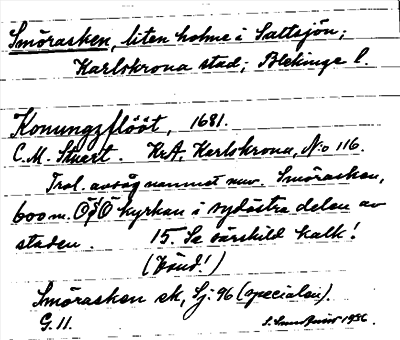 Smörasken, liten holme i Saltsjön;
Karlskrona stad; Blekinge l.
Konungzflööt, 1681.
C. M. Stuert. KrA, Karlskrona, No 116.
Trol. avsåg namnet nuv. Smörasken,
600 m. ÖSÖ kyrkan i sydöstra delen av
staden. 15. Se särskild kalk!
(Vänd!)
Smörasken ek, Sj. 96 (specialen).
G. 11. 1956.